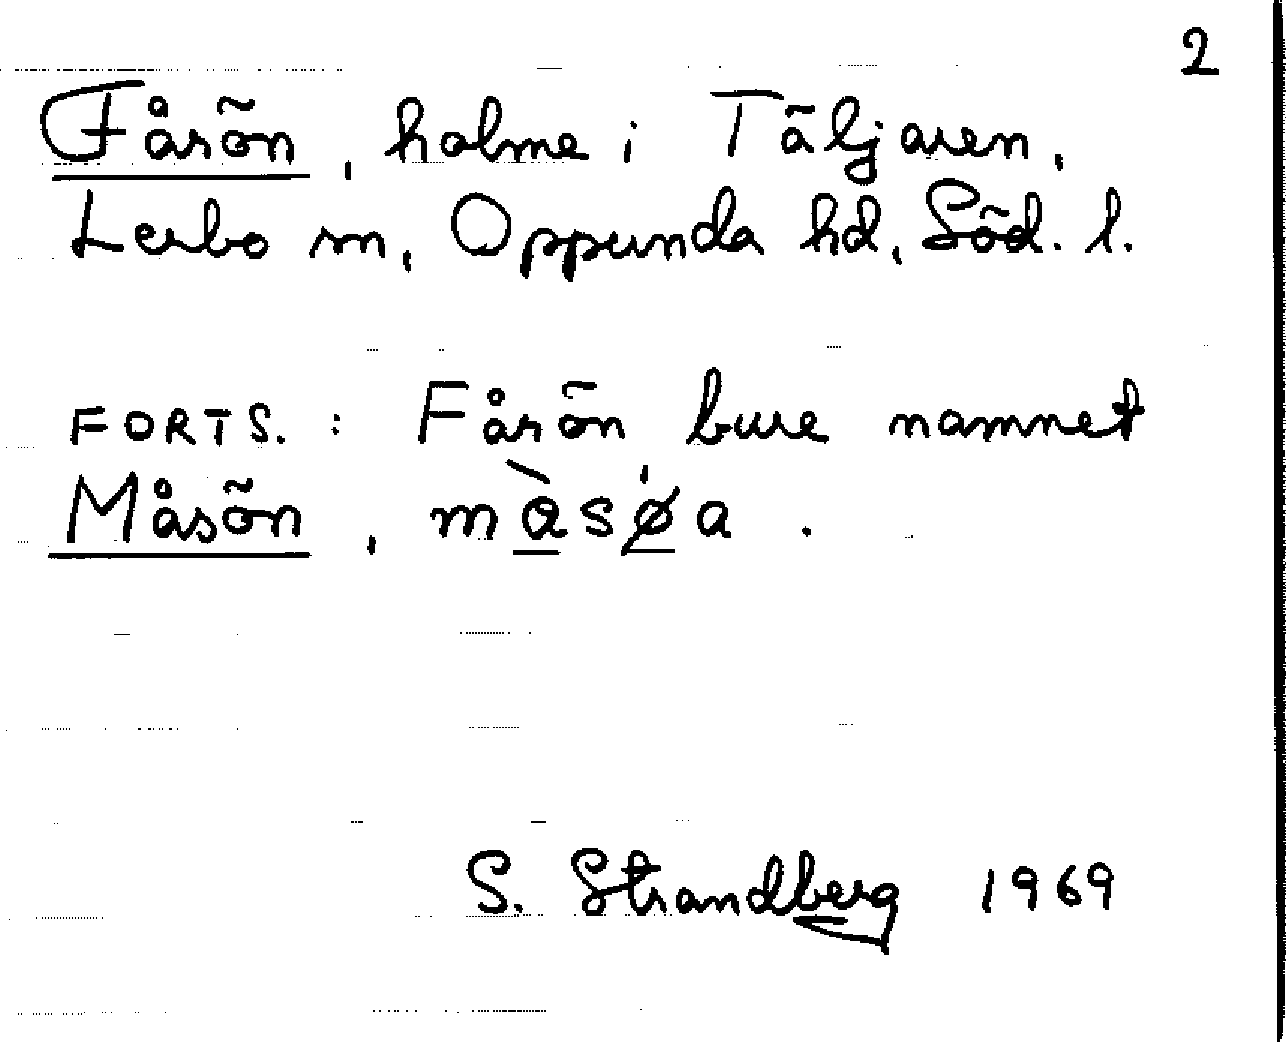 2
Fårön, holme i Täljaren,
Lerbo sn, Oppunda hd, Söd. l.
FORTS. : Fårön bure namnet
Måsön, màsǿa .
S. Strandberg 1969